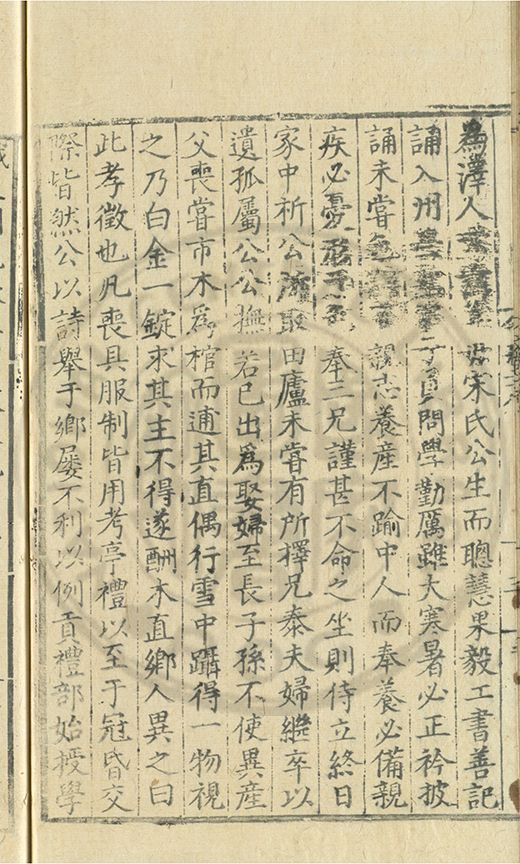 為澤人
母宋氏公生而聰慧果毅工書善記
誦入州學 子員問學勤厲雖大寒暑必正衿披
誦未嘗 親志養産不踰中人而奉養必備親
疾必憂 奉三兄謹甚不命之坐則侍立終日
家中析公 取田廬未嘗有所擇兄泰夫婦繼卒以
遺孤屬公公撫若已出為娶婦至長子孫不使異産
父喪嘗市木為棺而逋其直偶行雪中躡得一物視
之乃白金一錠求其主不得遂酬木直鄉人異之曰
此孝徵也凡喪具服制皆用考亭禮以至于冠昏交
際皆然公以詩舉于鄉屢不利以例貢禮部始授學